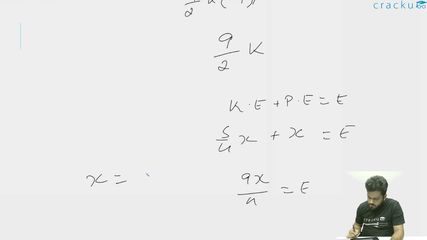 cracku
9/2 K
K.E + P.E = E
5/4 x + x = E
x =
9x/4 = E